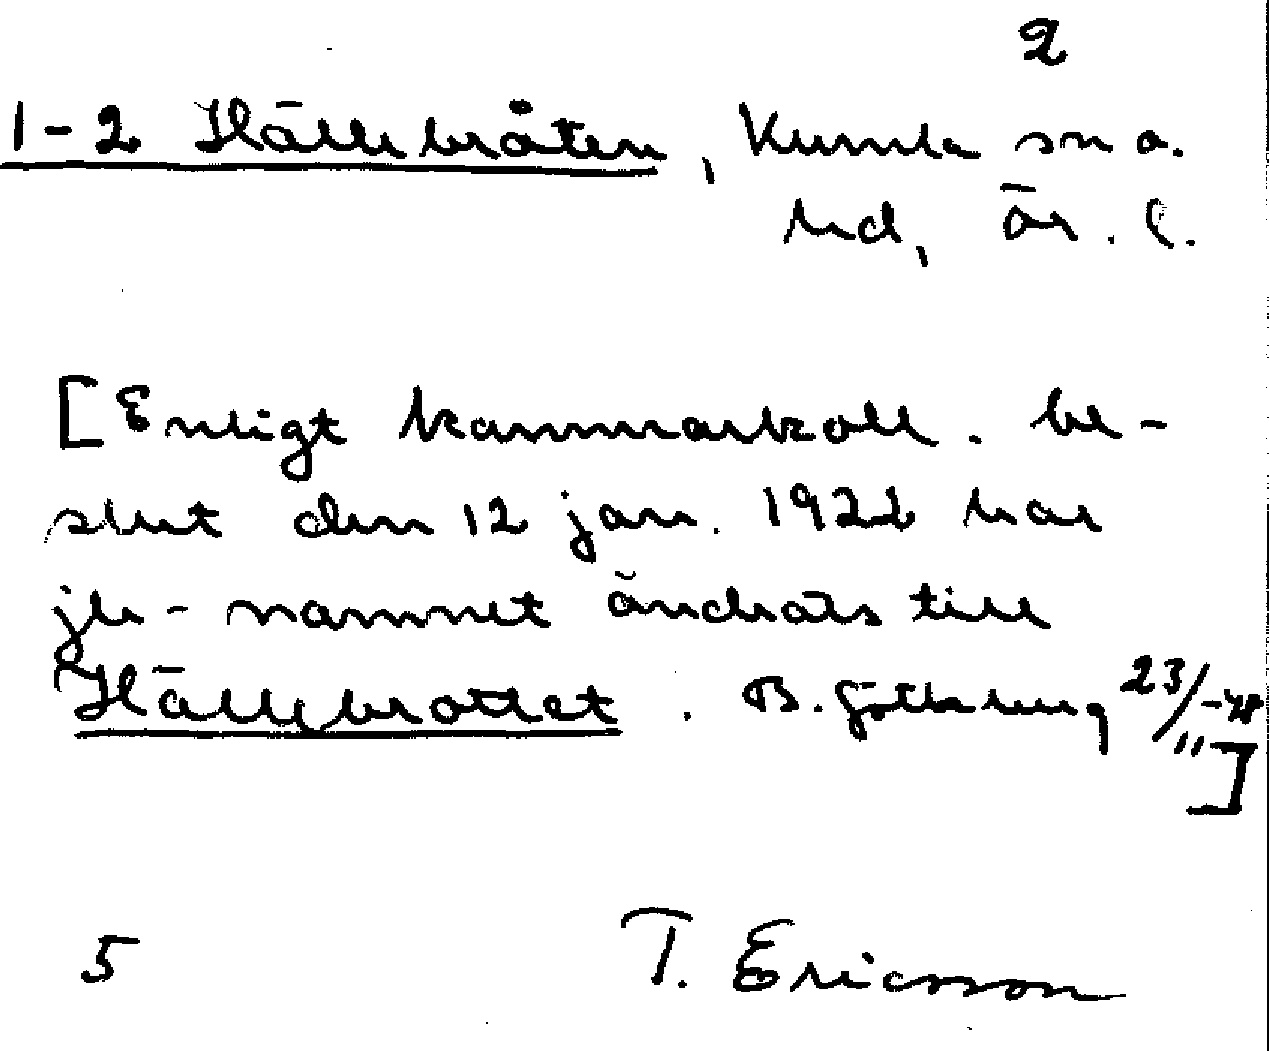 2
1-2 Hällebråten, Kumla sn o.
hd, Ör. l.
[Enligt kammarkoll. be-
slut den 12 jan. 1922 har
jb-namnet ändrats till
Hällebrottet. B. Götlberg 23/11 -48]
5 T. Ericsson